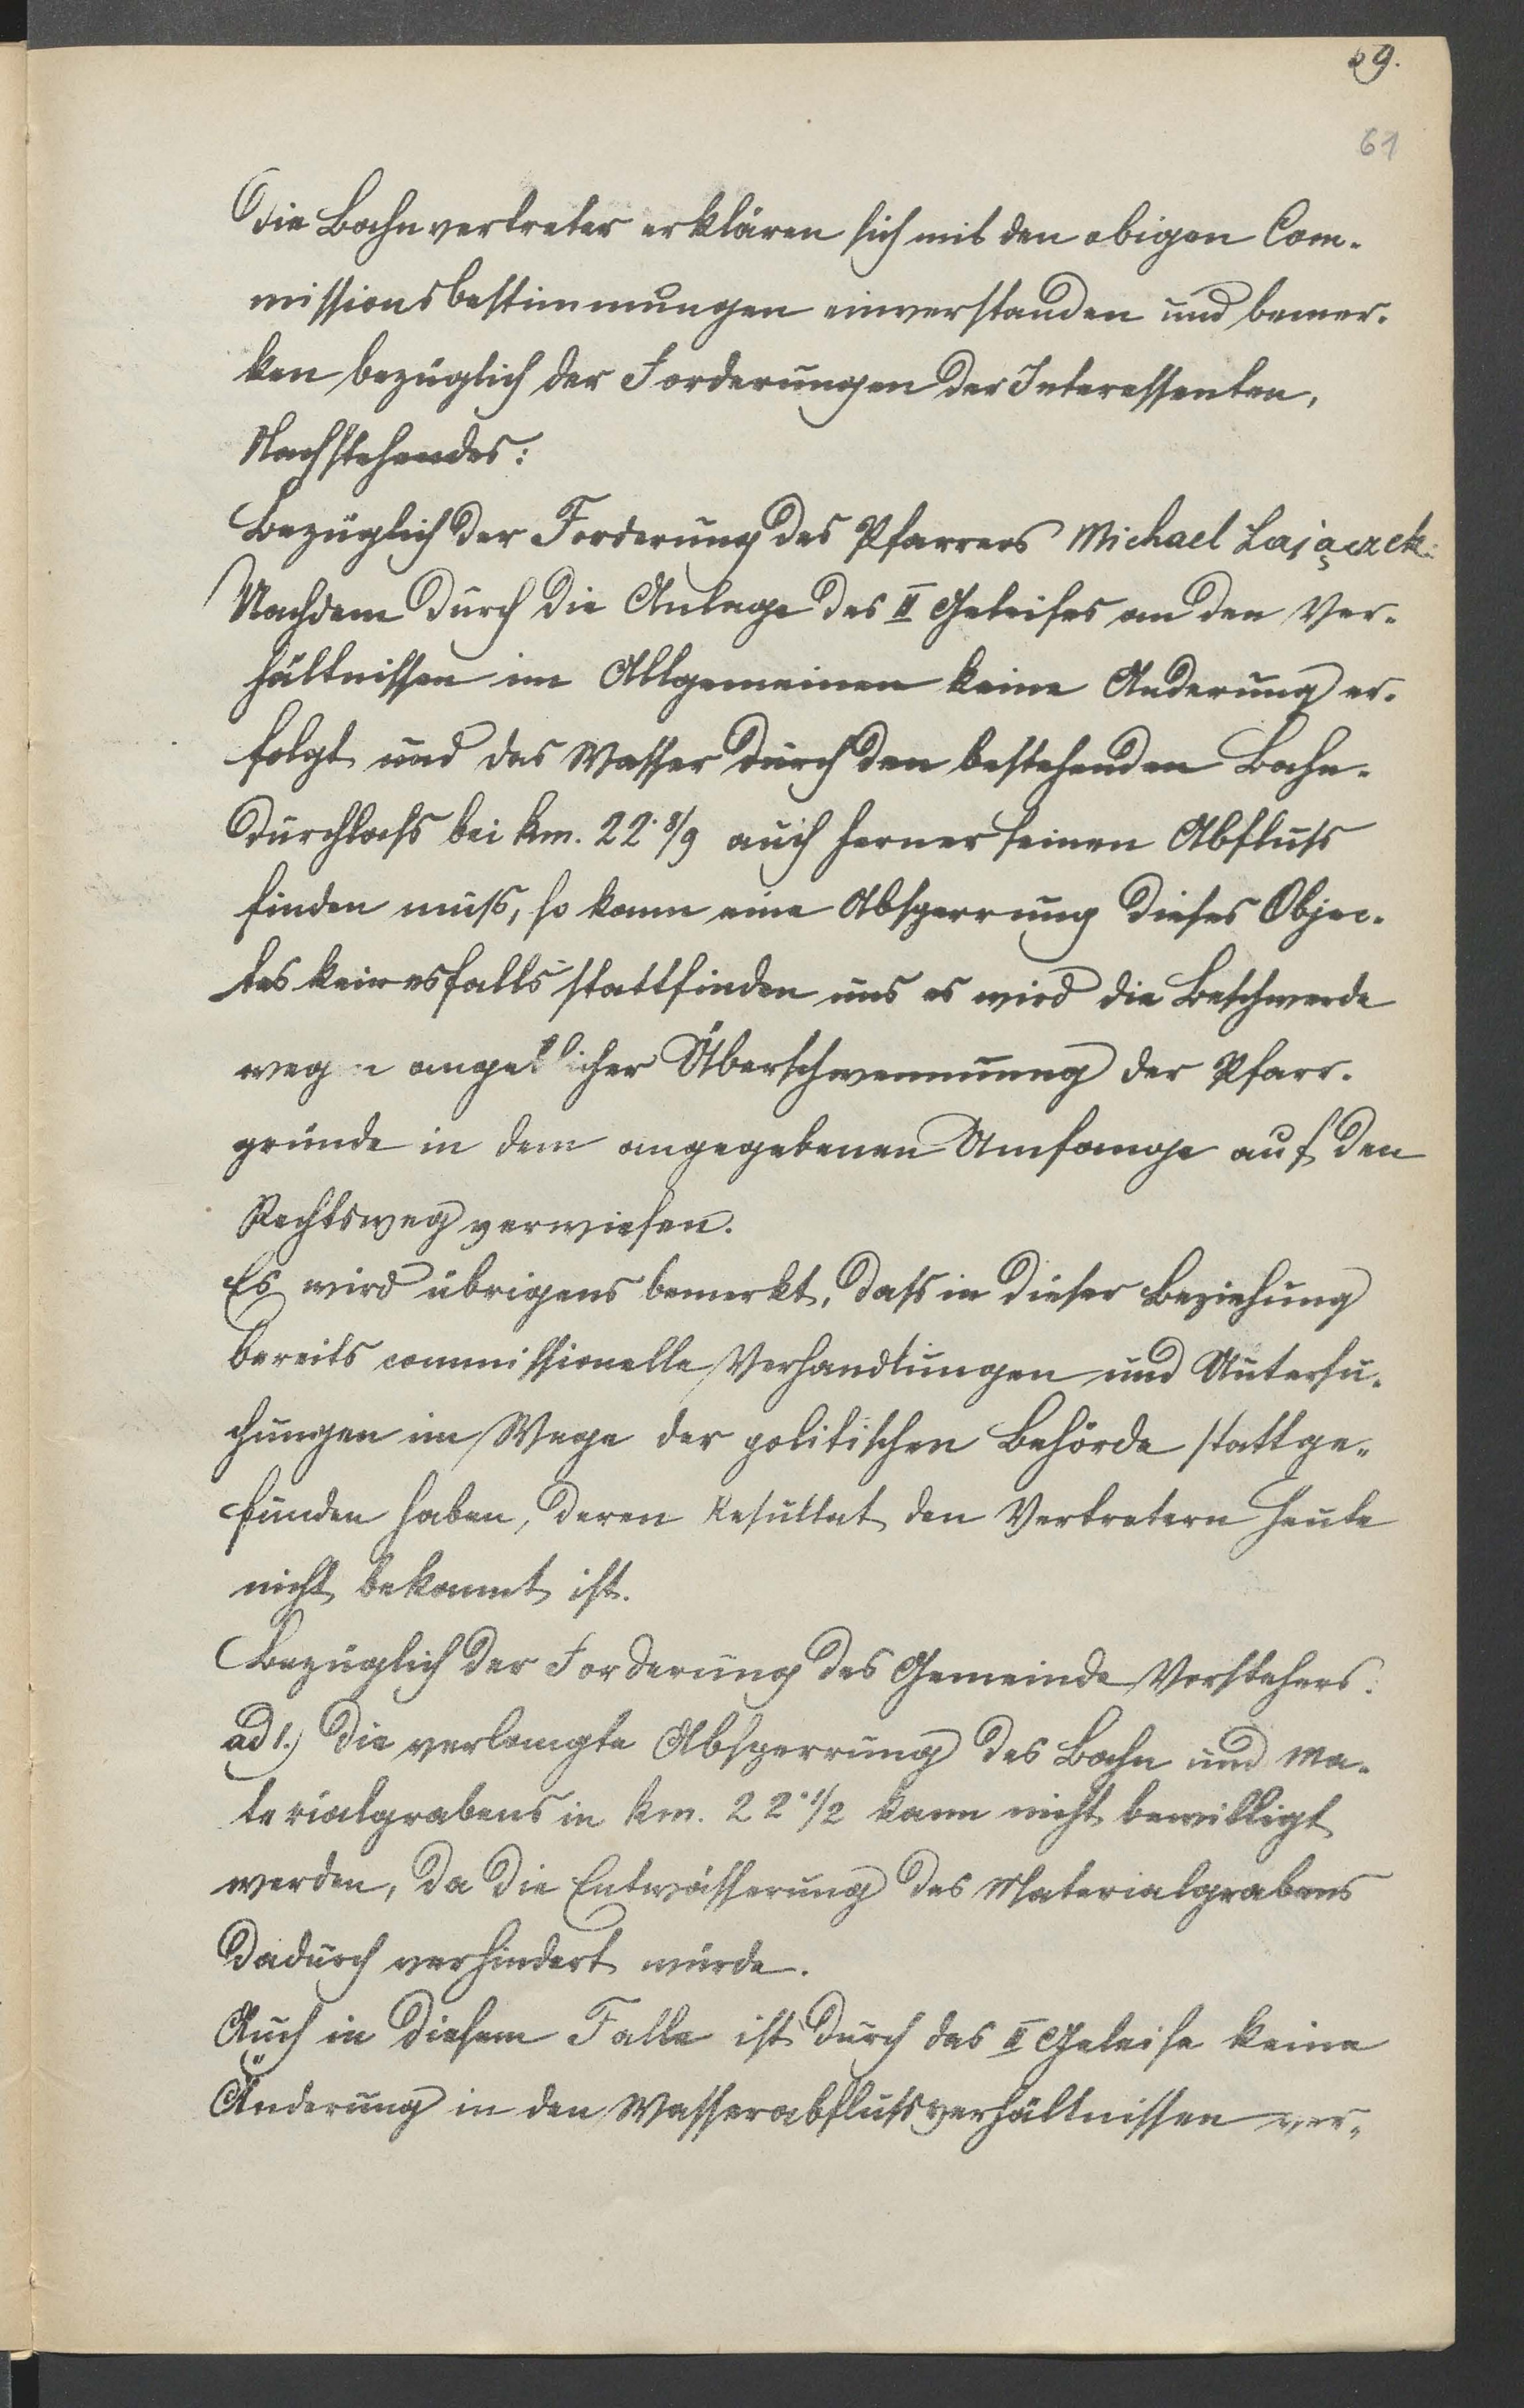 59.
61
Die Bahnvertreter erklären sich mit den obigen Com-
missionsbestimmungen einverstanden und bemer-
ken bezüglich der Forderungen der Interessenten,
Nachstehendes:
Bezüglich der Forderung des Pfarrers Michael Zajączek:
Nachdem durch die Anlage des II Geleises an den Ver-
hältnissen im Allgemeinen keine Anderung er-
folgt und das Wasser durch den bestehenden Bahn-
durchlass bei km. 22·8/9 auch ferner seinen Abfluss
finden muss, so kann eine Absperrung dieses Objec-
tes keinesfalls stattfinden uns es wird die Beschwerde
wegen angeblicher Überschwemmung der Pfarr-
gründe in dem angegebenen Umfange auf den
Rechtsweg verwiesen.
Es wird übrigens bemerkt, dass in dieser Beziehung
bereits commissionelle Verhandlungen und Untersu-
chungen im Wege der politischen Behörde stattge-
funden haben, deren Resultat den Vertretern heute
nicht bekannt ist.
Bezüglich der Forderung des Gemeinde Vorstehers:
ad 1.) Die verlangte Absperrung des Bahn und Ma-
terialgrabens in km. 22·1/2 kann nicht bewilligt
werden, da die Entwässerung des Materialgrabens
dadurch verhindert würde.
Auch in diesem Falle ist durch das II Geleise keine
Änderung in den Wasserabflussverhältnissen ver-